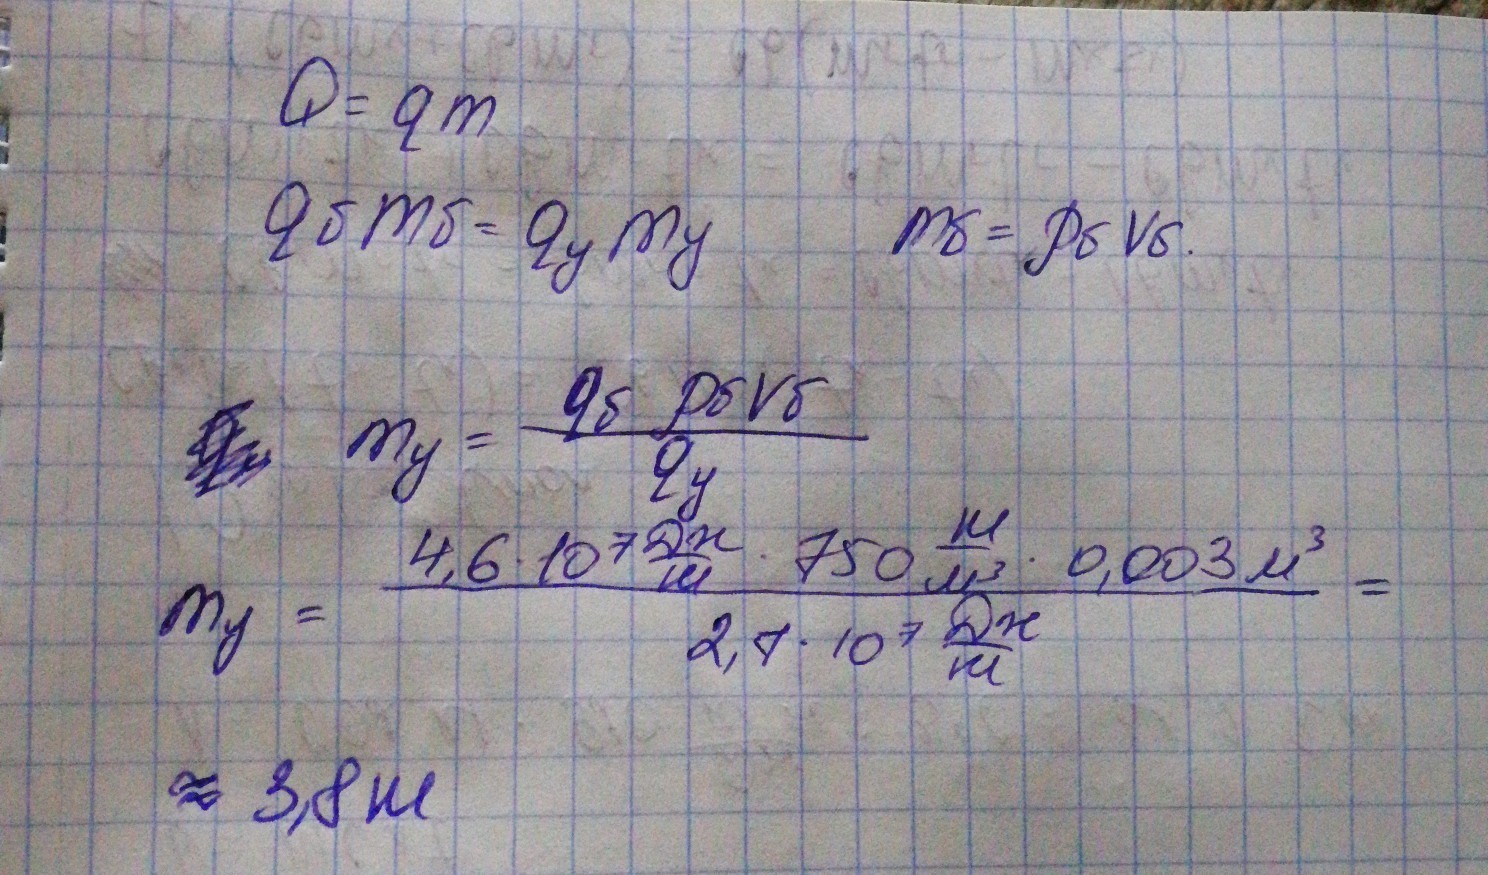 Q = qm
qб mб = qу mу mб = ρб Vб.
mу = qб ρб Vб / qу
mу = 4,6 · 10⁷ Дж/кг · 750 кг/м³ · 0,003 м³ / 2,7 · 10⁷ Дж/кг =
≈ 3,8 кг